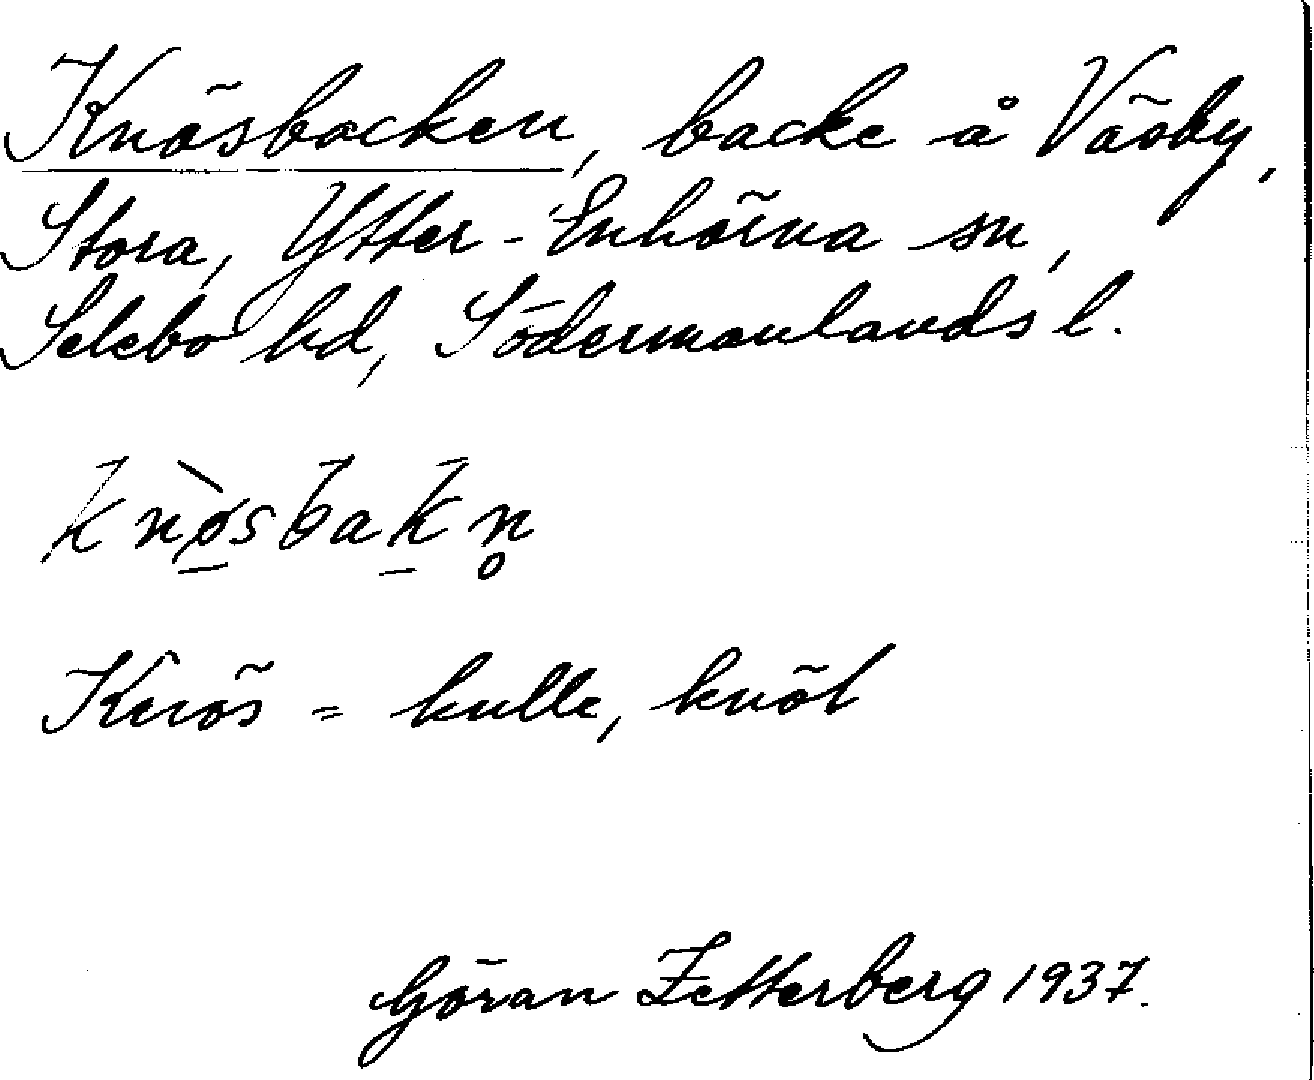 Knösbacken, backe å Väsby,
Stora, Ytter-Enhörna sn,
Selebo hd, Södermanlands l.
knø̀sbakn̥
Knös = kulle, knöl
Göran Zetterberg 1937.